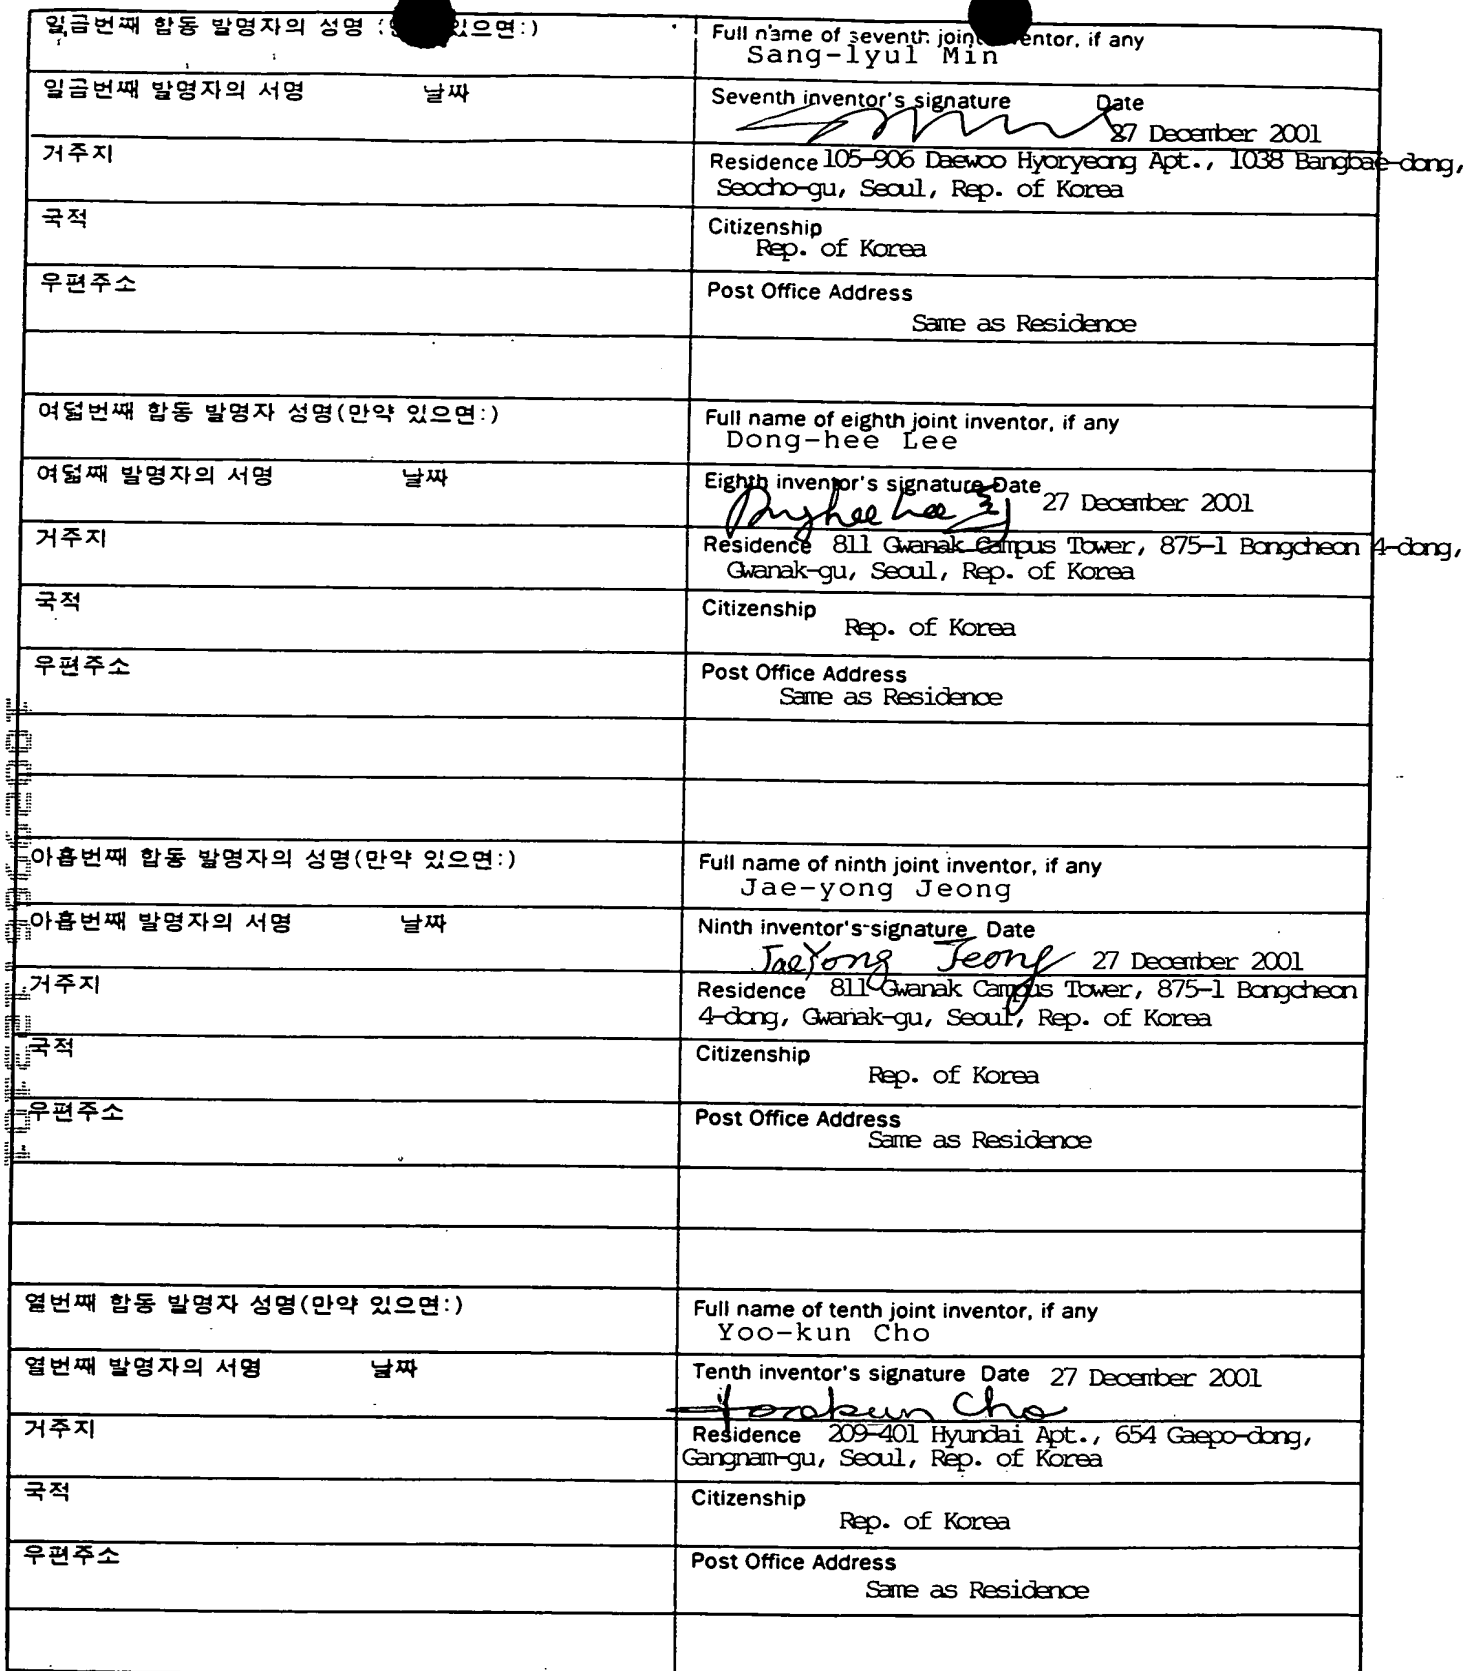 일곱번째 합동 발명자의 성명 있으면:)
Full name of seventh joint inventor, if any
Sang-lyul Min
일곱번째 발명자의 서명 날짜
Seventh inventor's signature Date
27 December 2001
거주지
Residence 105-906 Daewoo Hyoryeong Apt., 1038 Bangbae-dong,
Seocho-gu, Seoul, Rep. of Korea
국적
Citizenship
Rep. of Korea
우편주소
Post Office Address
Same as Residence
여덟번째 합동 발명자 성명(만약 있으면:)
Full name of eighth joint inventor, if any
Dong-hee Lee
여덟째 발명자의 서명 날짜
Eighth inventor's signature Date
Donghee Lee 27 December 2001
거주지
Residence 811 Gwanak Campus Tower, 875-1 Bongcheon 4-dong,
Gwanak-gu, Seoul, Rep. of Korea
국적
Citizenship
Rep. of Korea
우편주소
Post Office Address
Same as Residence
아홉번째 합동 발명자의 성명(만약 있으면:)
Full name of ninth joint inventor, if any
Jae-yong Jeong
아홉번째 발명자의 서명 날짜
Ninth inventor's signature Date
JaeYong Jeong 27 December 2001
거주지
Residence 811 Gwanak Campus Tower, 875-1 Bongcheon
4-dong, Gwanak-gu, Seoul, Rep. of Korea
국적
Citizenship
Rep. of Korea
우편주소
Post Office Address
Same as Residence
열번째 합동 발명자 성명(만약 있으면:)
Full name of tenth joint inventor, if any
Yoo-kun Cho
열번째 발명자의 서명 날짜
Tenth inventor's signature Date 27 December 2001
Yookun Cho
거주지
Residence 209-401 Hyundai Apt., 654 Gaepo-dong,
Gangnam-gu, Seoul, Rep. of Korea
국적
Citizenship
Rep. of Korea
우편주소
Post Office Address
Same as Residence